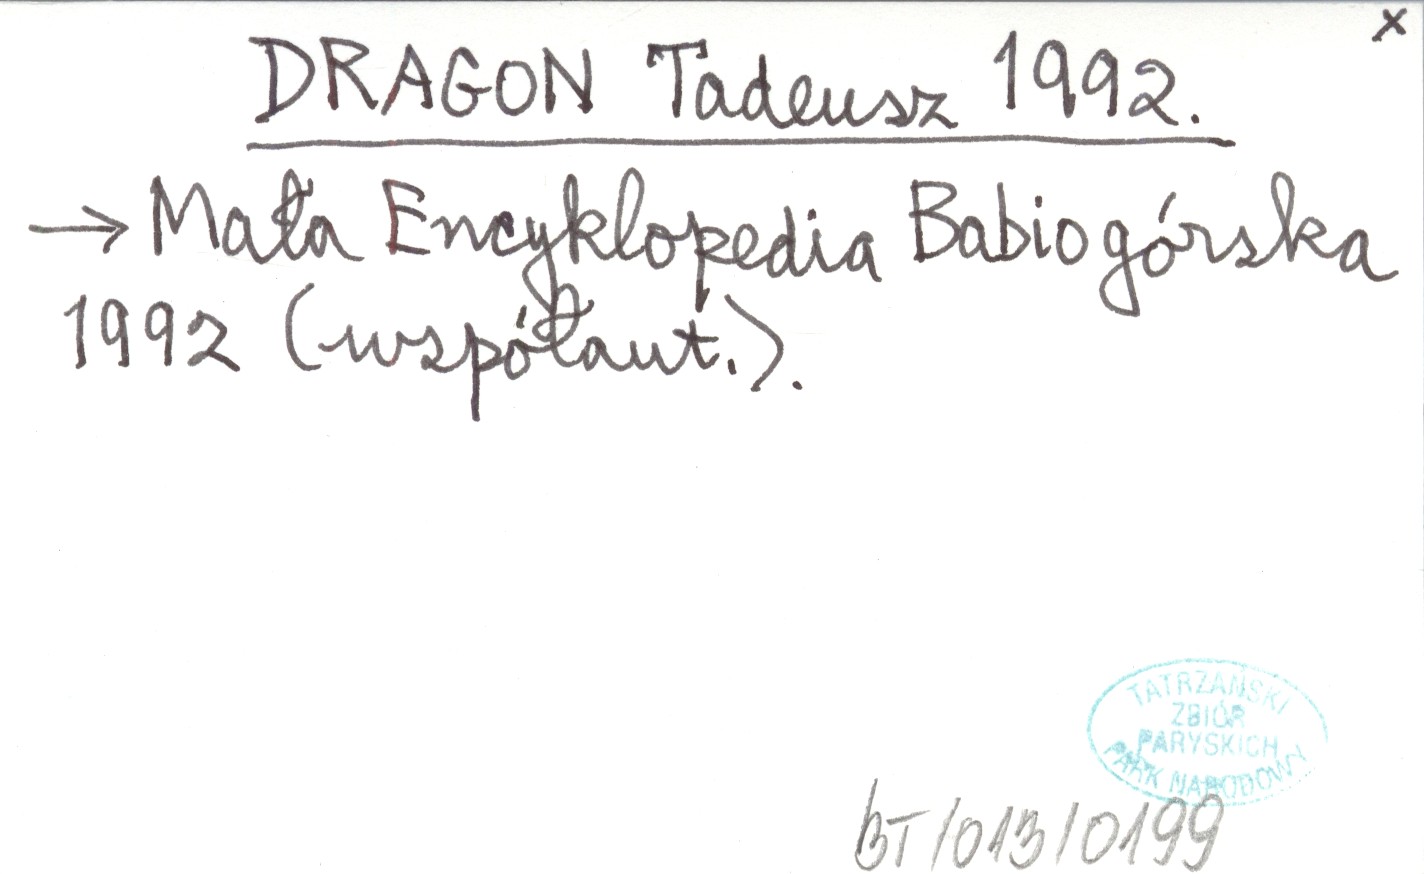 x
DRAGON Tadeusz 1992.
→ Mała Encyklopedia Babiogórska
1992 (współaut.).
TATRZAŃSKI
ZBIÓR
PARYSKICH
PARK NARODOWY
BT/013/0199